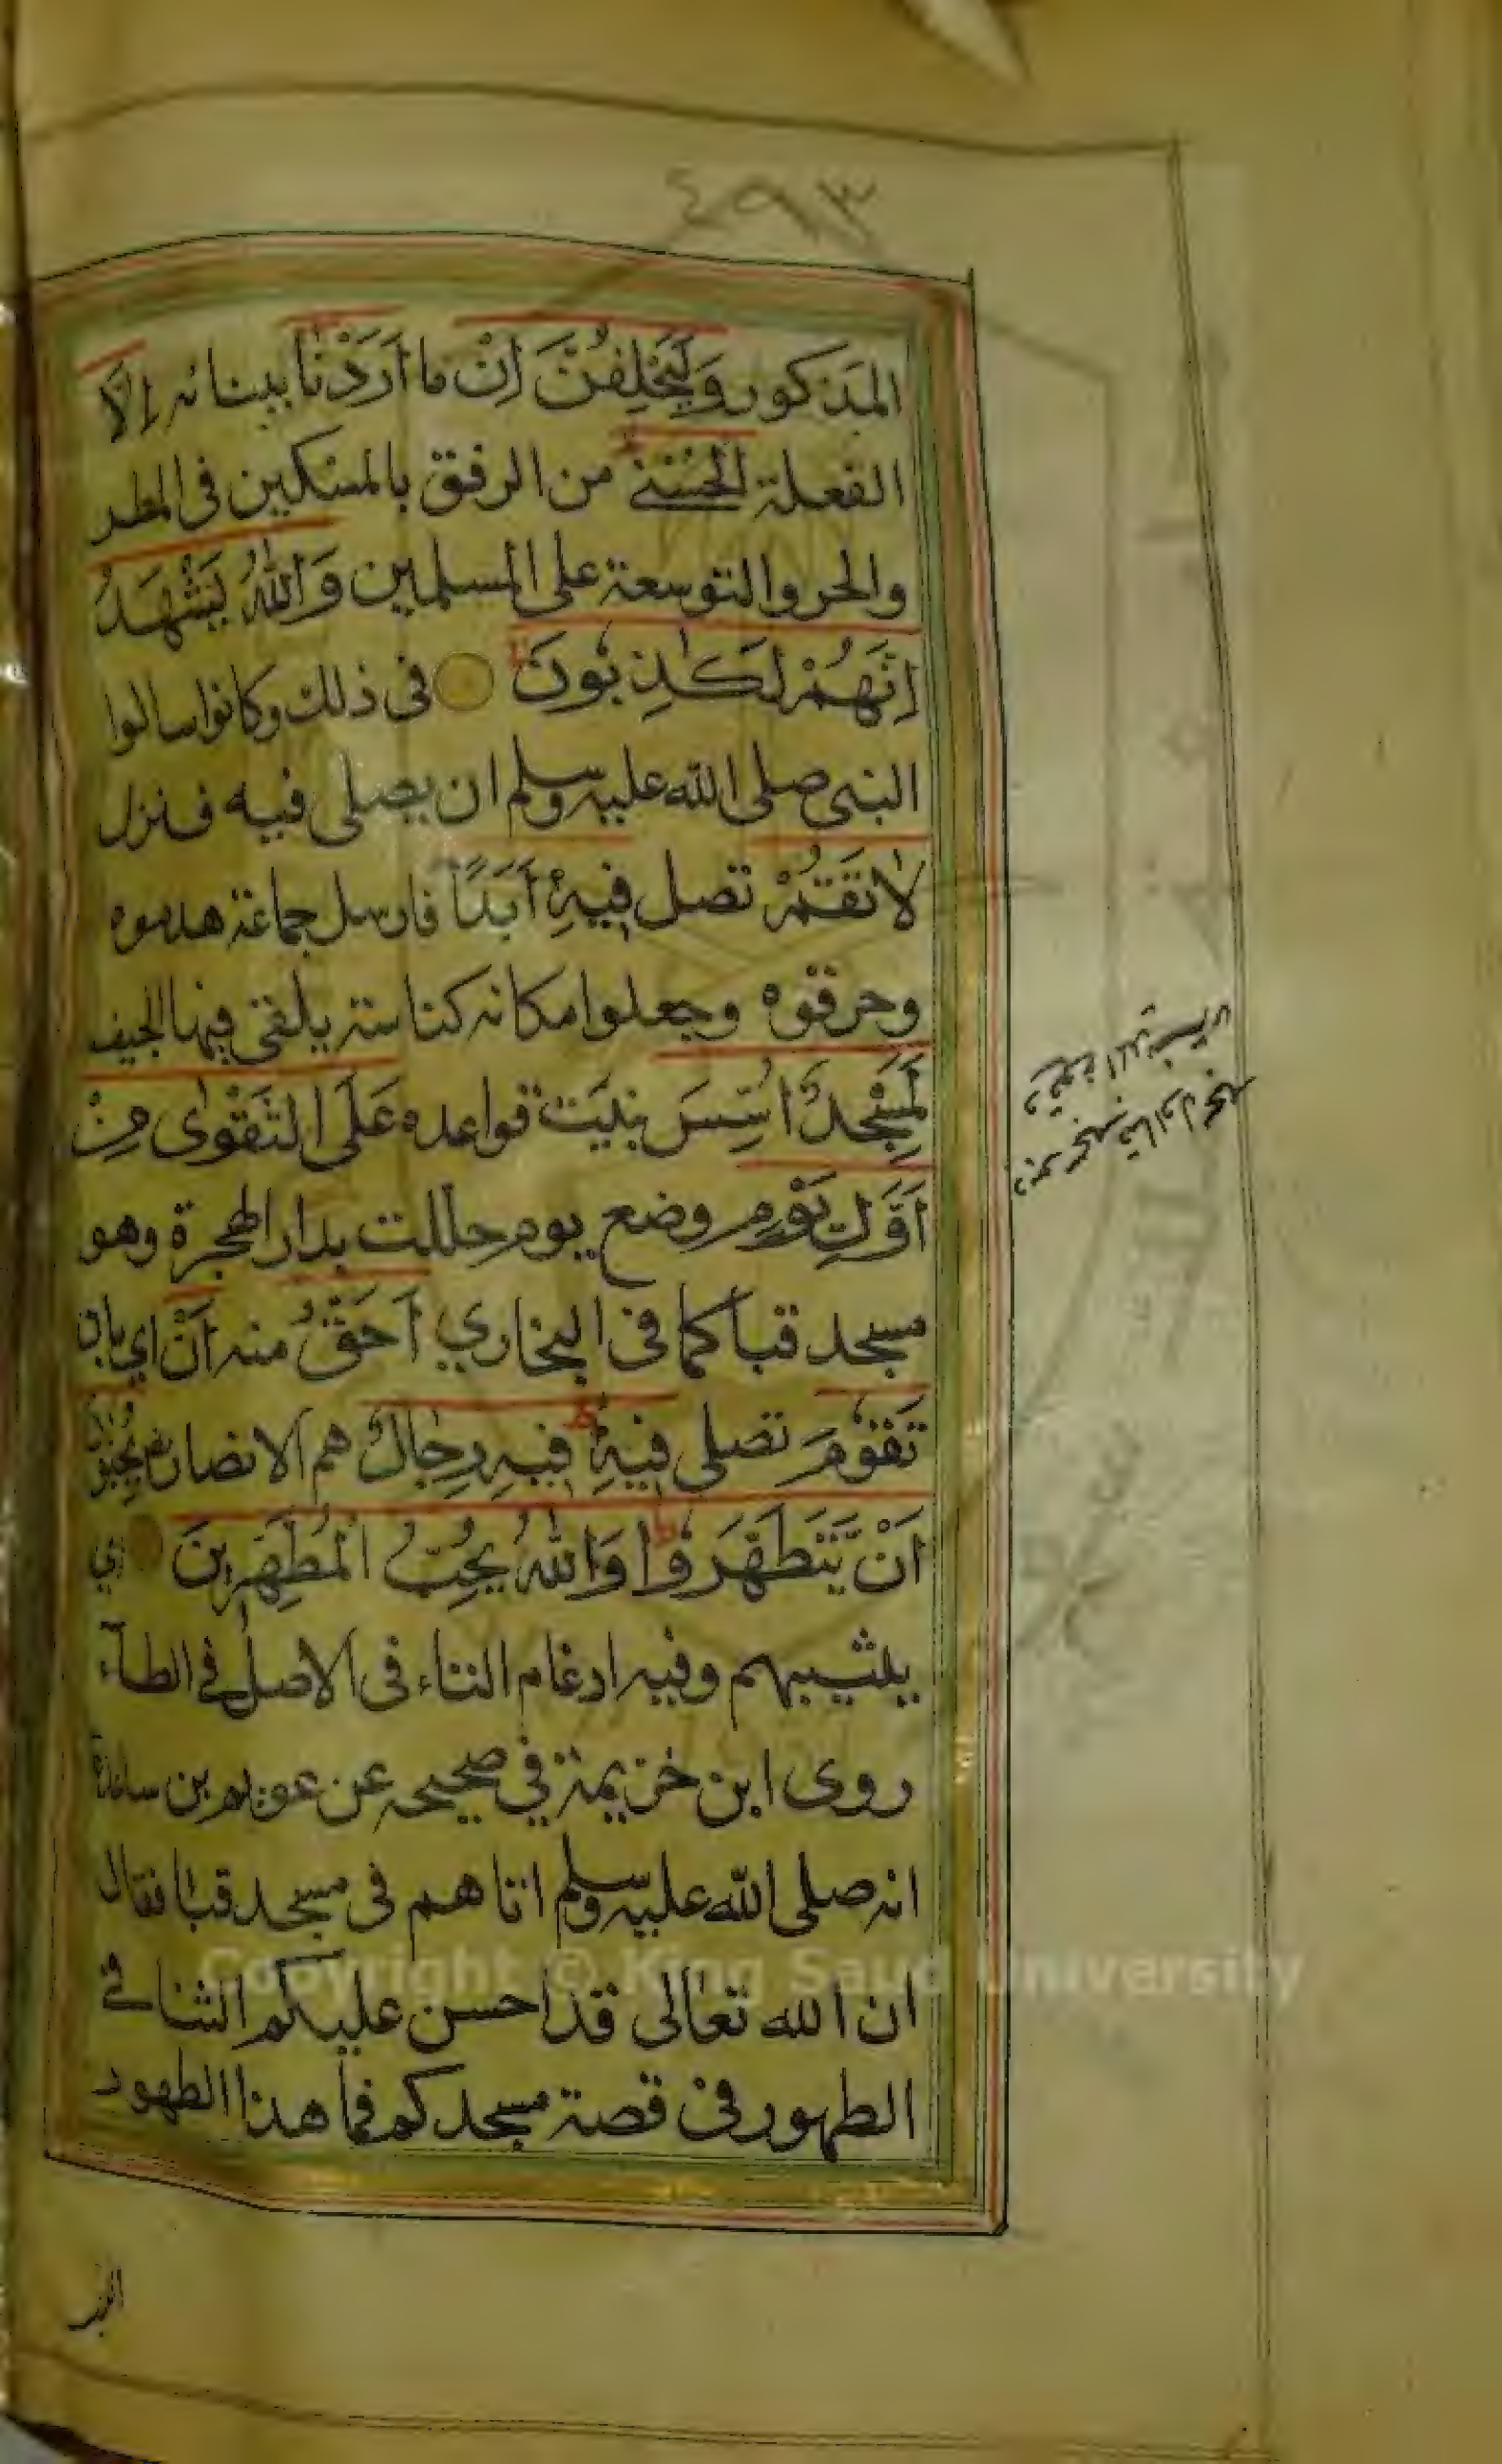 ٤٩٣
المذكور وَلَيَحْلِفُنَّ اِنْ ما اَرَدْنَا ببنائه اِلَّا
الفعلة الْحُسْنٰى من الرفق بالمسكين فى المطر
والحر والتوسعة على المسلمين وَاللّٰهُ يَشْهَدُ
اِنَّهُمْ لَكٰذِبُونَ فى ذلك وكانوا سالوا
النبى صلى الله عليه وسلم ان يصلى فيه فنزل
لَا تَقُمْ تصل فِيهِ اَبَدًا فارسل جماعة هدموه
وحرقوه وجعلوا مكانه كناسة يلقى فيها الجيف
لَمَسْجِدٌ اُسِّسَ بنيت قواعده عَلَى التَّقْوٰى مِنْ
اَوَّلِ يَوْمٍ وضع يوم حللت بدار الهجرة وهو
مسجد قبا كما فى البخاري اَحَقُّ منه اَنْ اي بان
تَقُومَ تصلى فِيهِ فِيهِ رِجَالٌ هم الانصار يُحِبُّونَ
اَنْ يَتَطَهَّرُوا وَاللّٰهُ يُحِبُّ الْمُطَّهِّرِينَ اي
يثيبهم وفيه ادغام التاء فى الاصل فى الطآء
روى ابن خزيمة في صحيحه عن عويم بن ساعدة
انه صلى الله عليه وسلم اتاهم فى مسجد قبا فقال
ان الله تعالى قد احسن عليكم الثنا فى
الطهور فى قصة مسجدكم فما هذا الطهور
الذى
Copyright © King Saud University